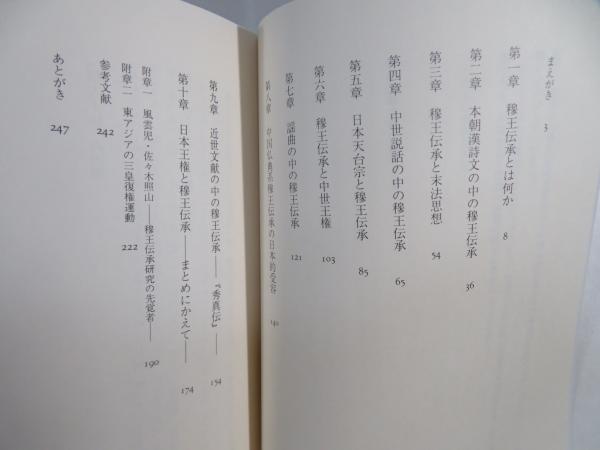 まえがき 3
第一章 穆王伝承とは何か 8
第二章 本朝漢詩文の中の穆王伝承 36
第三章 穆王伝承と末法思想 54
第四章 中世説話の中の穆王伝承 65
第五章 日本天台宗と穆王伝承 85
第六章 穆王伝承と中世王権 103
第七章 謡曲の中の穆王伝承 121
第八章 中国仏典系穆王伝承の日本的受容 140
第九章 近世文献の中の穆王伝承――『秀真伝』―― 154
第十章 日本王権と穆王伝承――まとめにかえて―― 174
附章一 風雲児・佐々木照山――穆王伝承研究の先覚者―― 190
附章二 東アジアの三皇復権運動 222
参考文献 242
あとがき 247